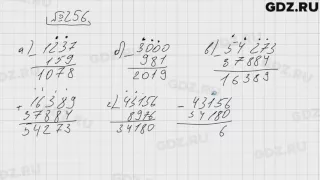 GDZ.RU
№256.
а) 1237 б) 3000 в) 54273
159 981 37884
1078 2019 16389
+ 16389 г) 43156 - 43156
37884 8976 34180
54273 34180 6
GDZ.RU